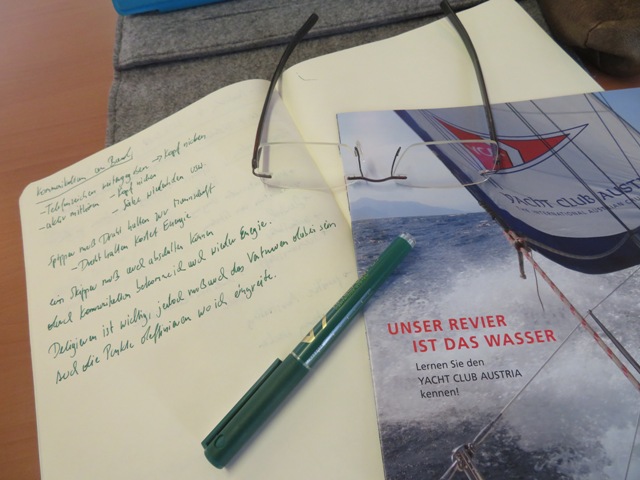 Kommunikation an Bord
- Telefonzeichen weitergeben → Kopf nicken
- aktiv mithören - Kopf nicken
- Sätze wiederholen usw.
Skipper muß Draht halten zur Mannschaft
- Draht halten kostet Energie
ein Skipper muß auch abschalten können
durch Kommunikation bekomme ich auch wieder Energie.
Deligieren ist wichtig, jedoch muß auch das Vertrauen dabei sein
auch die Punkte definieren wo ich eingreife.
YACHT CLUB AUSTRIA
UNSER REVIER
IST DAS WASSER
Lernen Sie den
YACHT CLUB AUSTRIA
kennen!